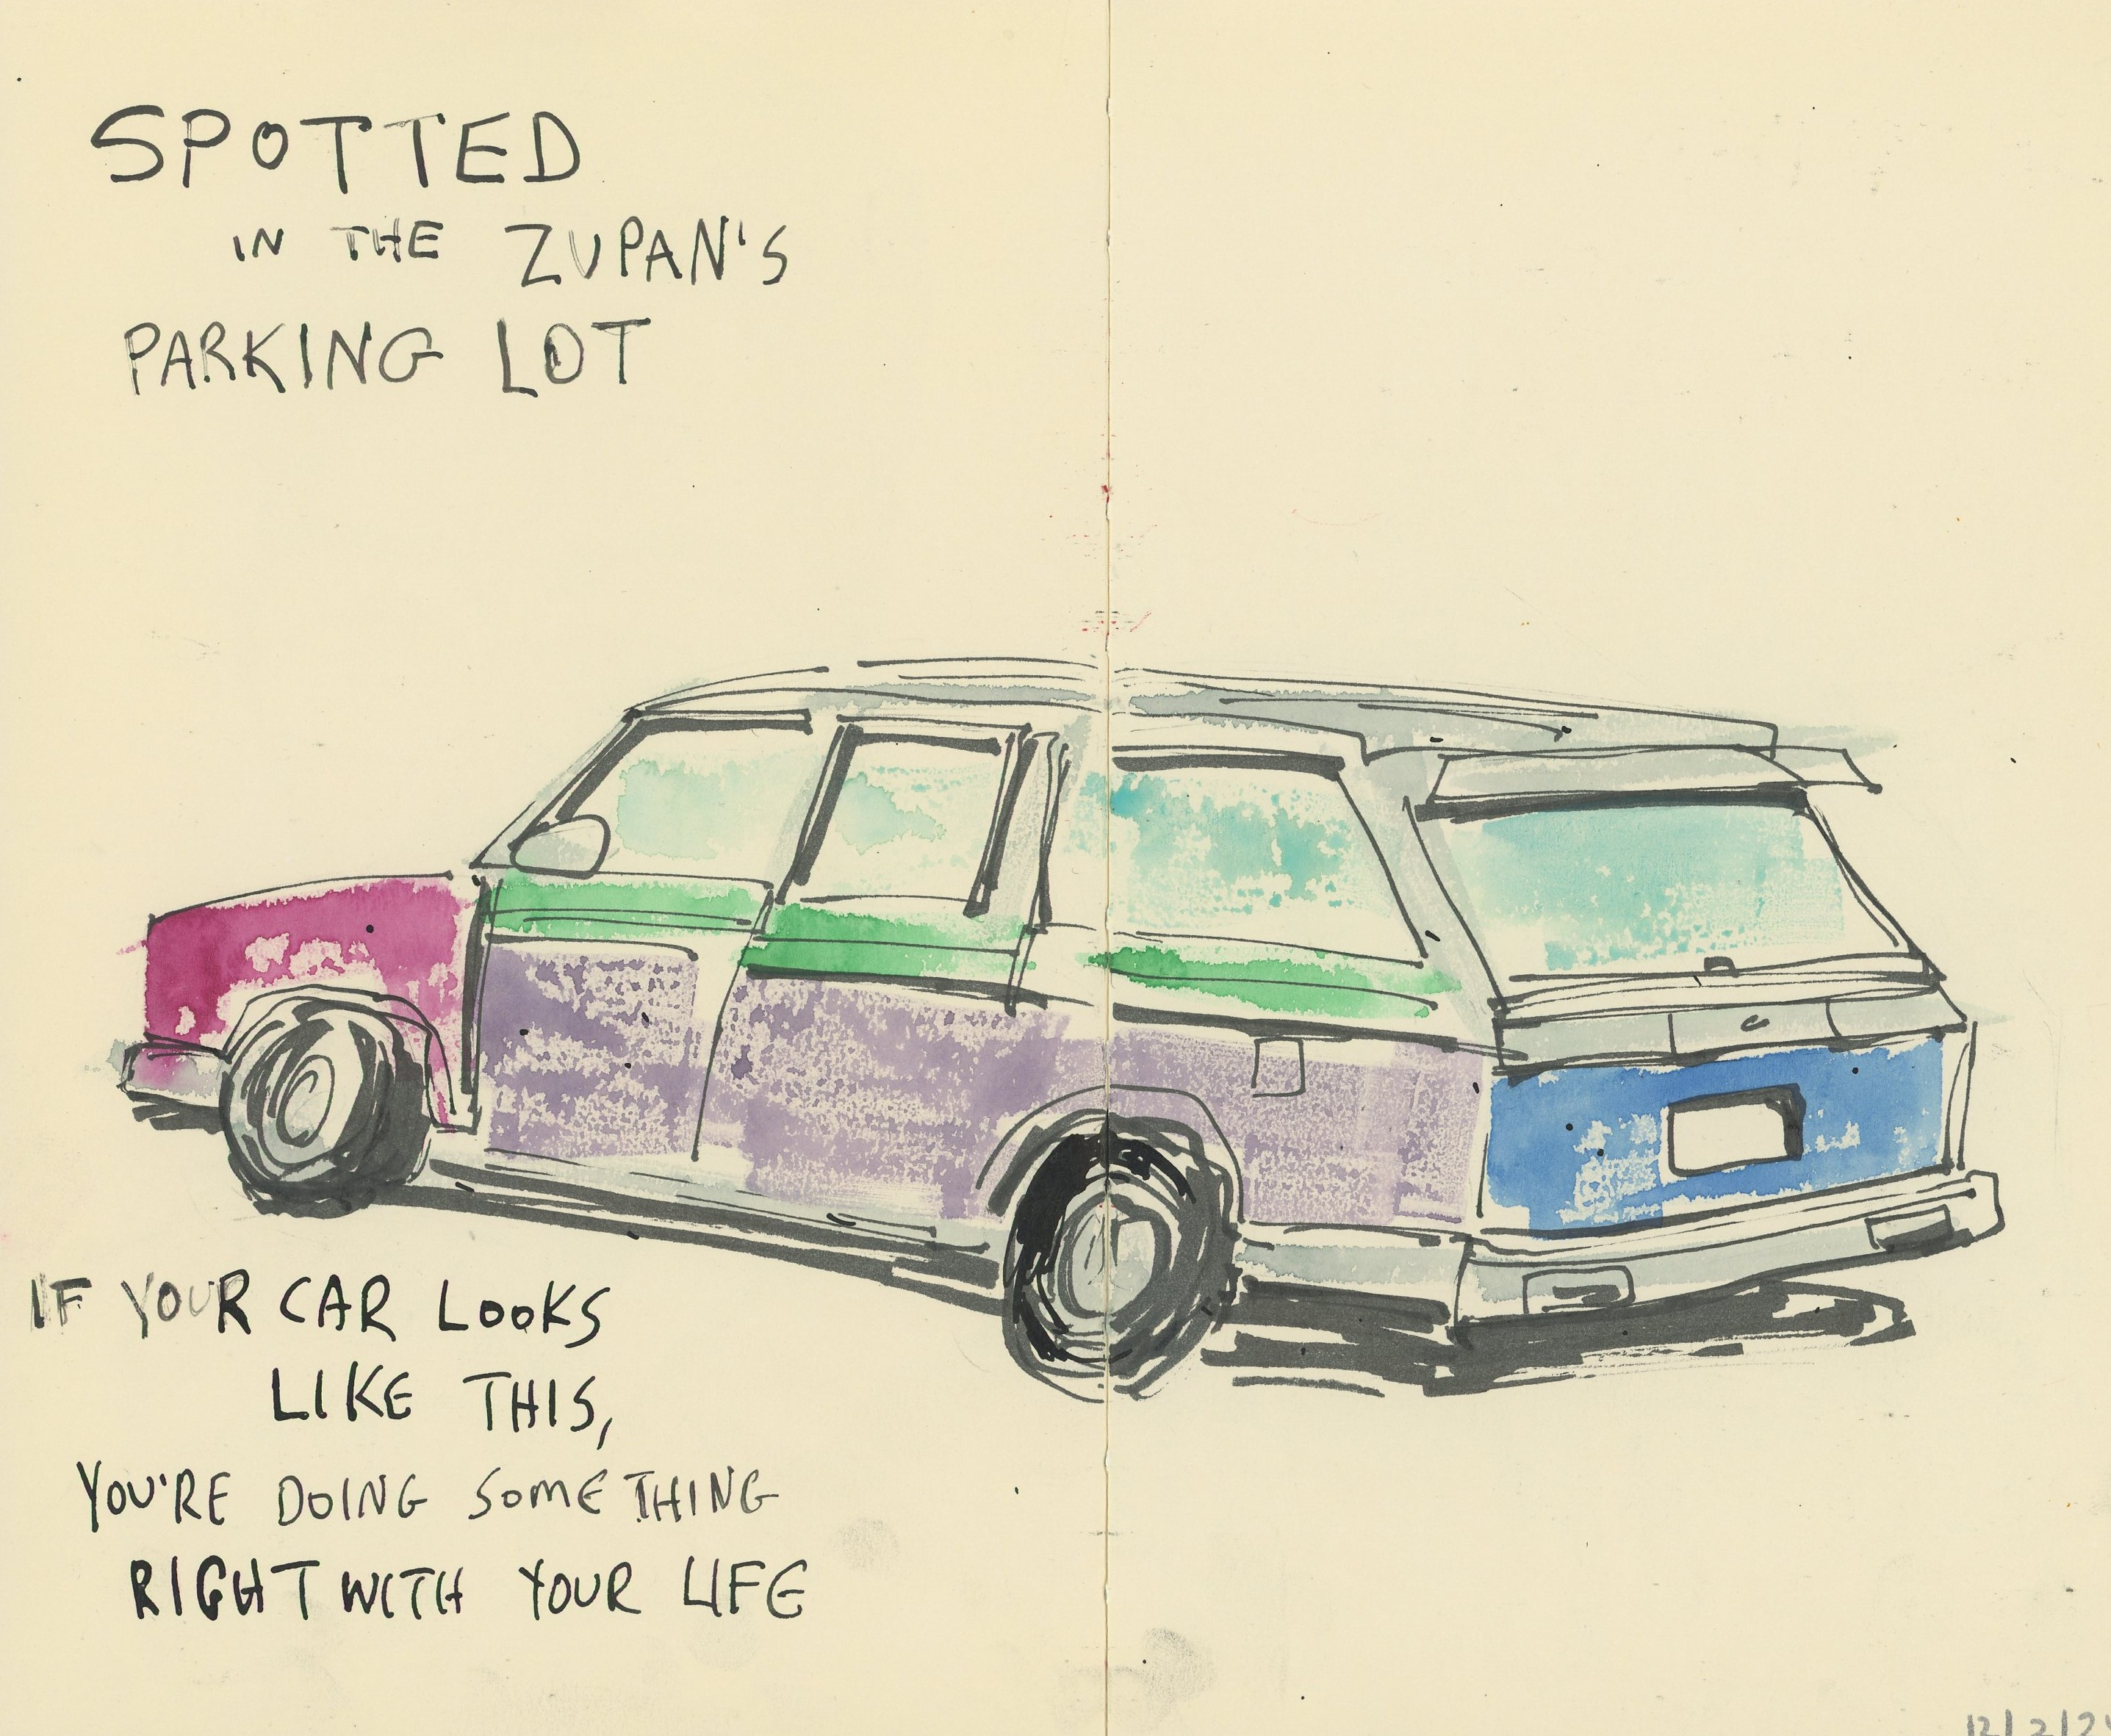 SPOTTED
IN THE ZUPAN'S
PARKING LOT
IF YOUR CAR LOOKS
LIKE THIS,
YOU'RE DOING SOMETHING
RIGHT WITH YOUR LIFE